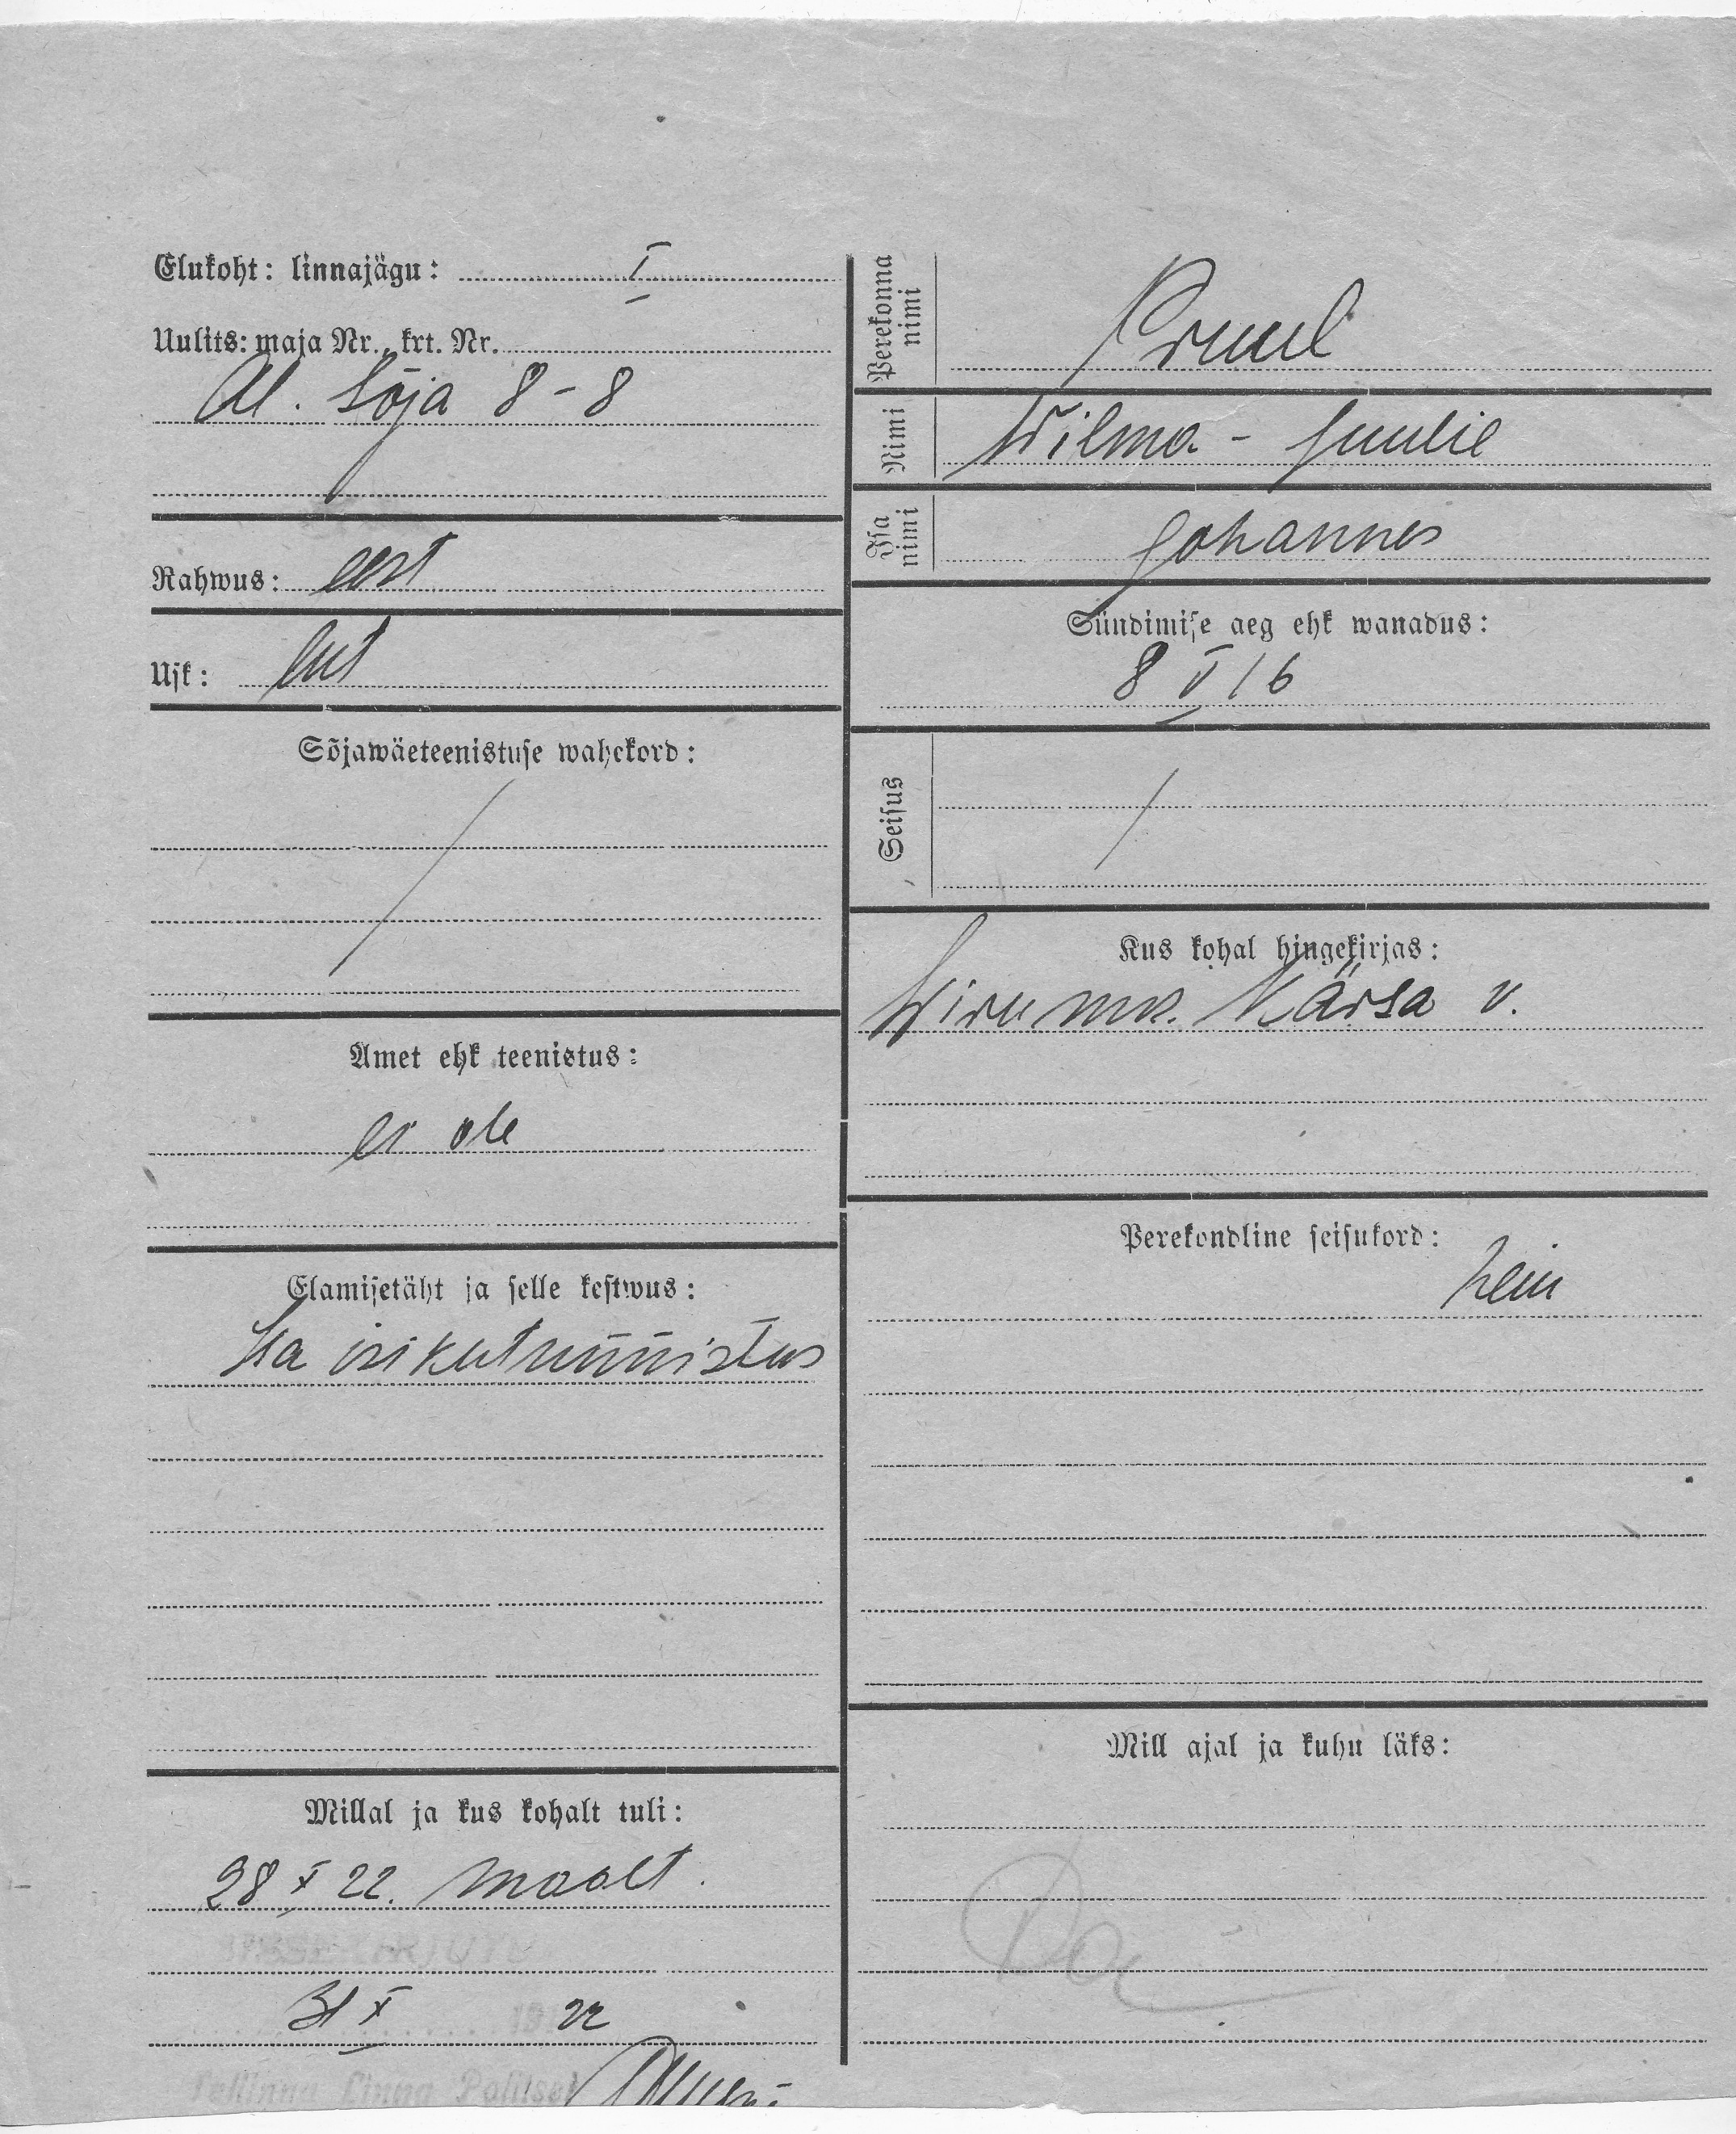 Elukoht: linnajägu: I
Uulits: maja Nr., krt. Nr.
Al. Sõja 8-8
Rahwus: eest
Usk: lut
Sõjawäeteenistuse wahekord:
/
Amet ehk teenistus:
ei ole
Elamisetäht ja selle kestwus:
isikutunnistus
Millal ja kus kohalt tuli:
28 X 22. maalt.
31 X 22
Tallinna Linna Politsei
Perekonna nimi
Pruul
Nimi
Wilma - Juulie
Isa nimi
Johannes
Sündimise aeg ehk wanadus:
8 V 16
Seisus
/
Kus kohal hingekirjas:
Wirumk. Kärsa v.
Perekondline seisukord:
Mill ajal ja kuhu läks: